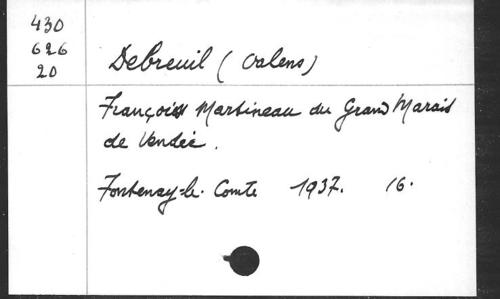 430
626
20
Debreuil (Valens)
François Martineau du Grand Marais
de Vendée.
Fontenay-le-Comte 1937. 16.